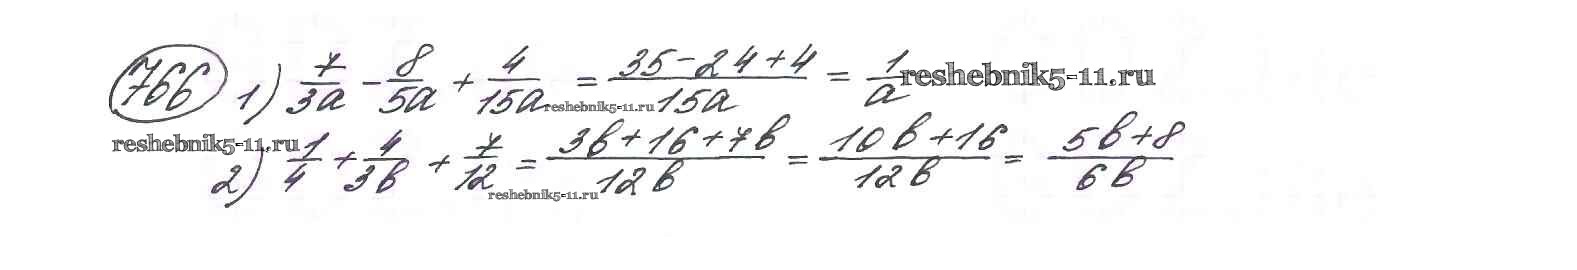 766 1) 7/3a - 8/5a + 4/15a = (35-24+4)/15a = 1/a reshebnik5-11.ru
reshebnik5-11.ru
reshebnik5-11.ru
2) 1/4 + 4/3b + 7/12 = (3b+16+7b)/12b = (10b+16)/12b = (5b+8)/6b
reshebnik5-11.ru